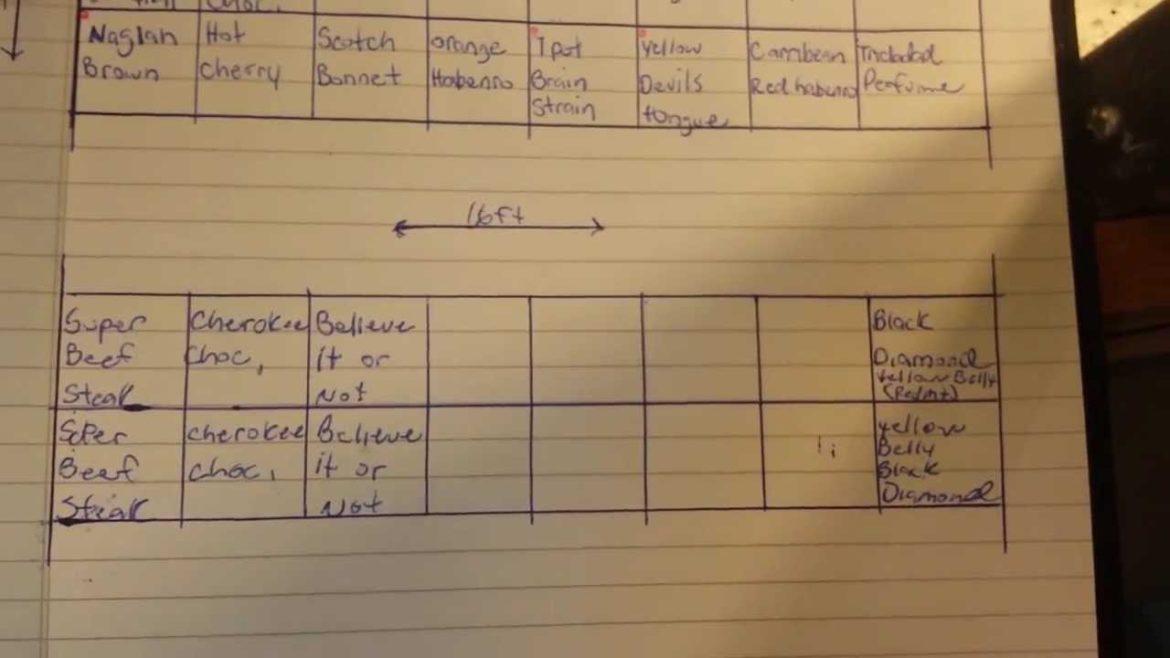 Choc.
Naglah Hot Scotch orange 7pot yellow Carribean Trichdad
Brown Cherry Bonnet Habenno Brain Devils Red habenno Perfume
Strain tongue
16ft
Super Cherokee Believe Black
Beef Choc, it or Diamond
Steak Not Yellow Belly
(Redmt)
SuPer cherokee Believe yellow
Beef choc, it or Belly
Steak Not Black
Diamond